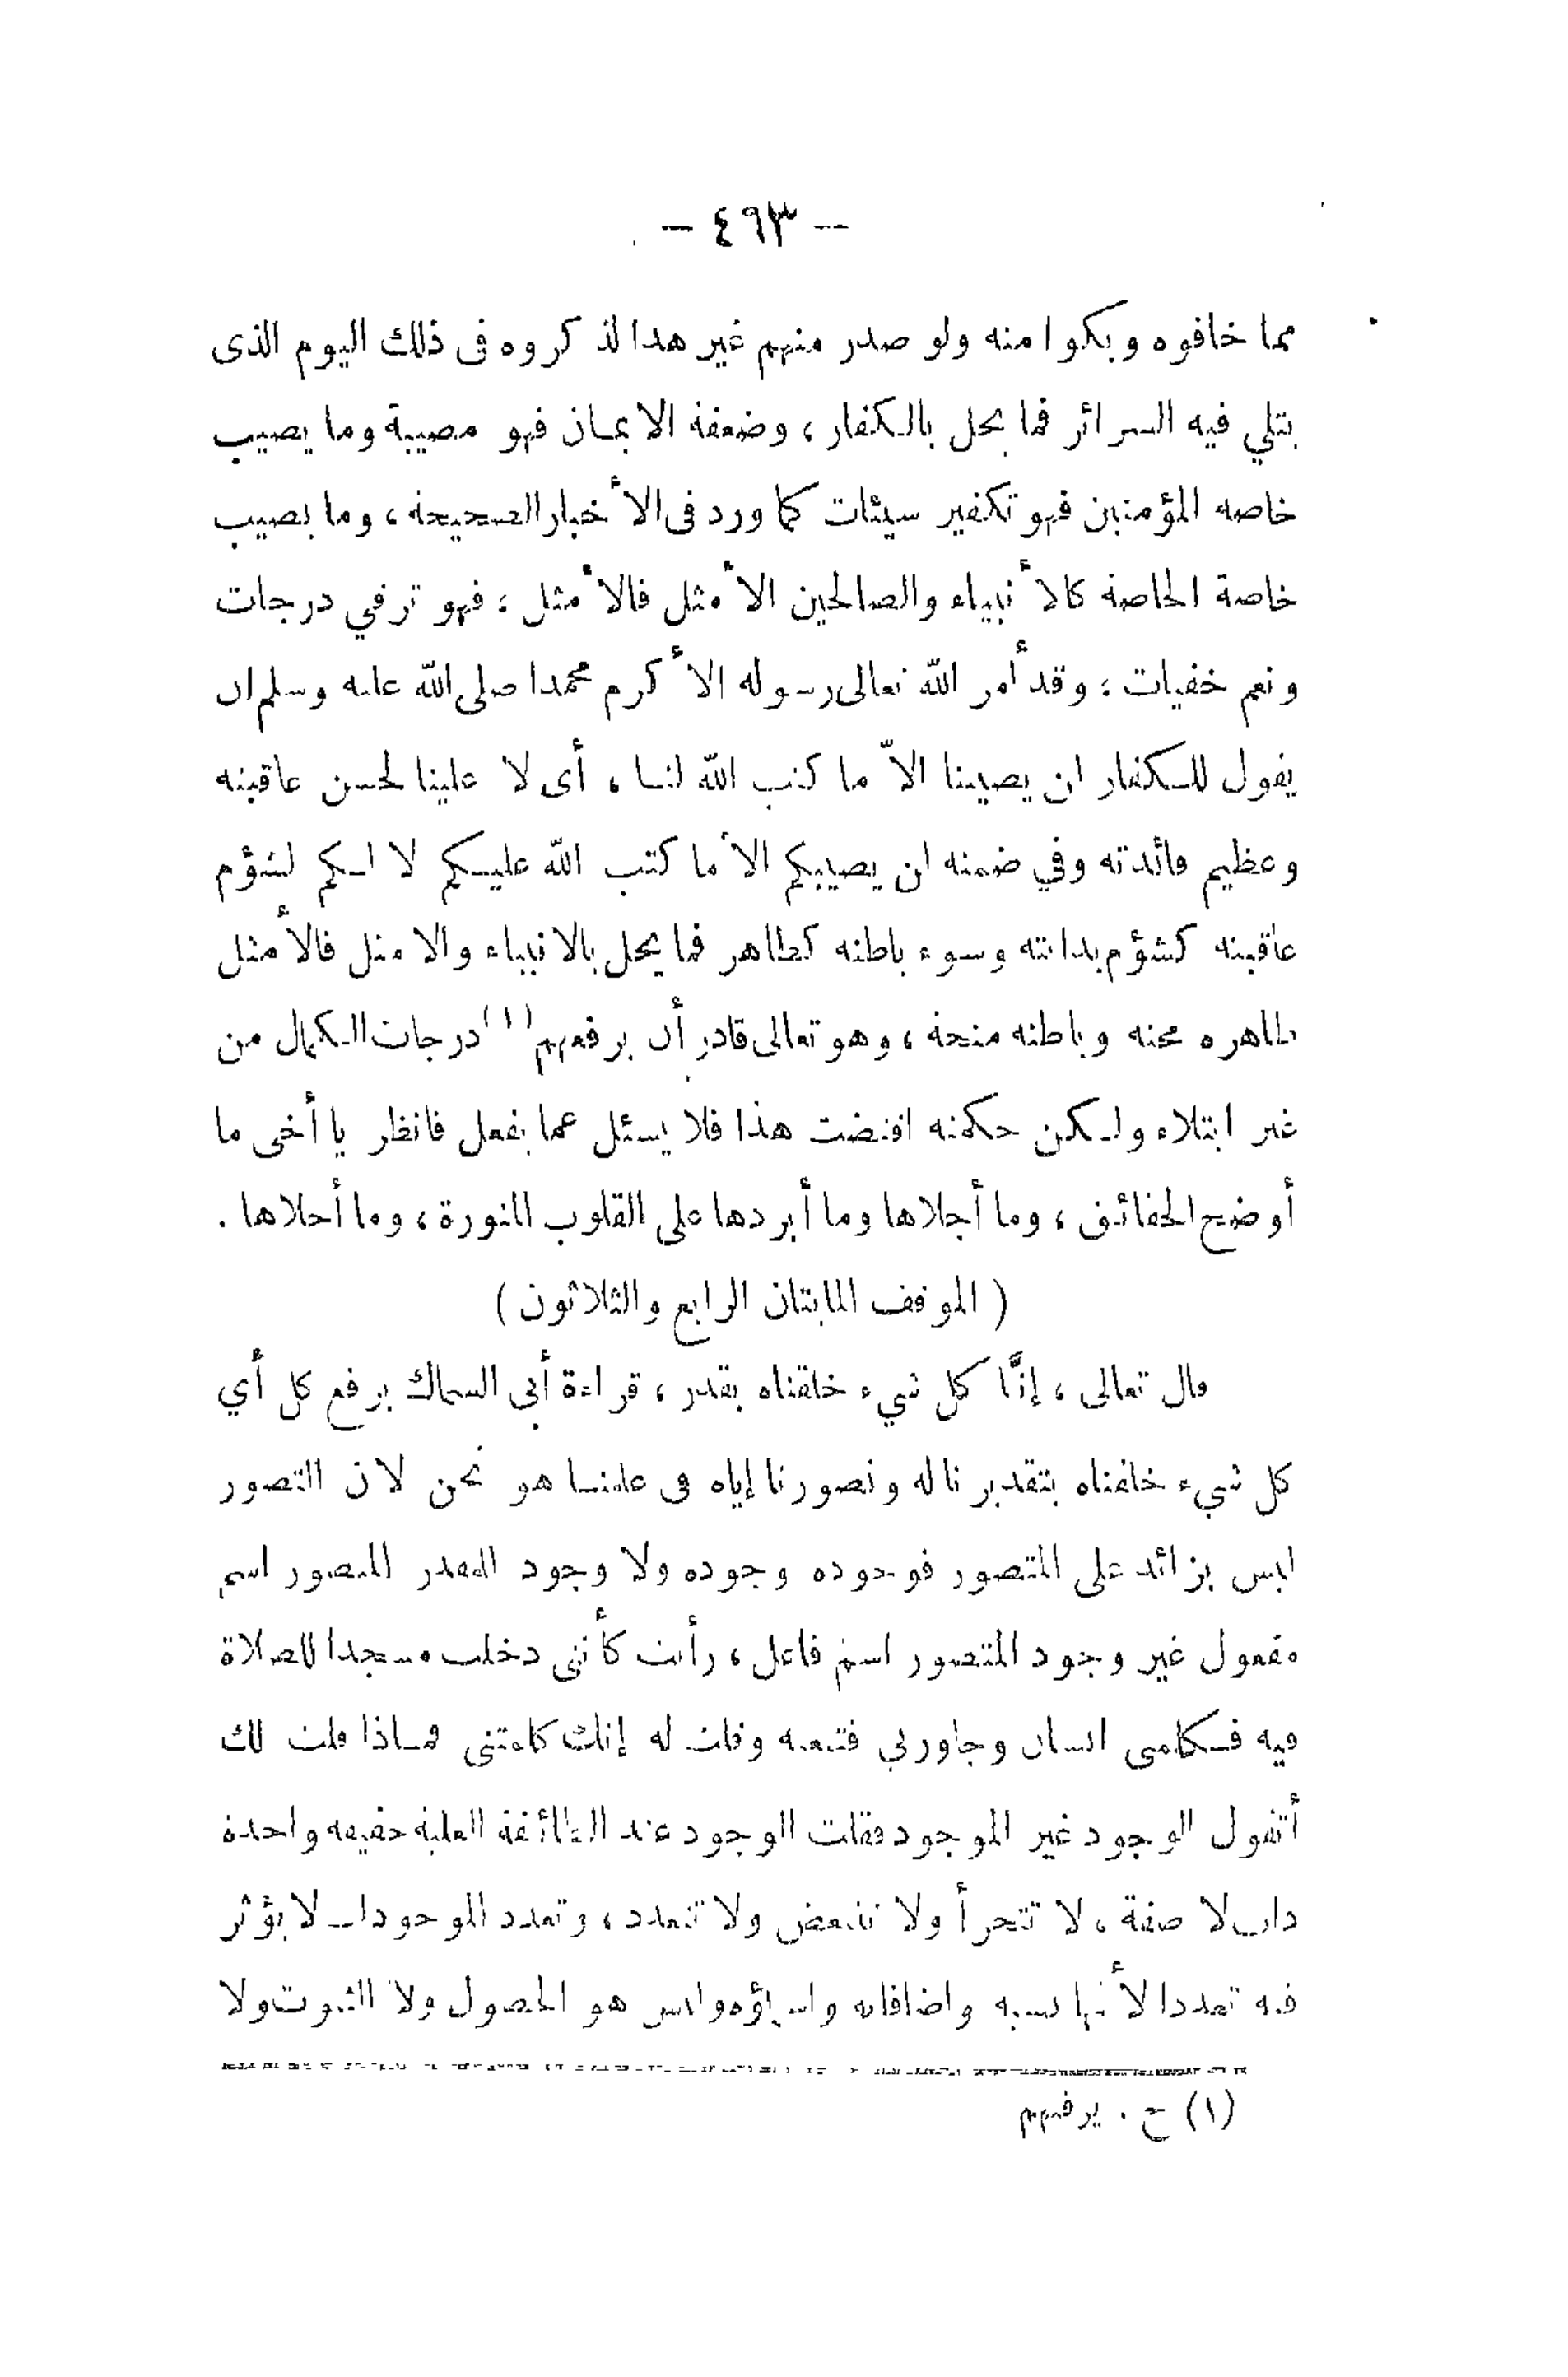 — ٤٩٣ —
مما خافوه وبكوا منه ولو صدر منهم غير هذا لذكروه فى ذلك اليوم الذى
تبلي فيه السرائر فما يحل بالكفار ، وضعفة الايمان فهو مصيبة وما يصيب
خاصة المؤمنين فهو تكفير سيئات كما ورد فى الأخبار الصحيحة ، وما يصيب
خاصة الخاصة كالأنبياء والصالحين الأمثل فالأمثل ، فهو ترقي درجات
ونعم خفيات ، وقد أمر الله تعالى رسوله الأكرم محمدا صلى الله عليه وسلم ان
يقول للكفار لن يصيبنا الاّ ما كتب الله لنا ، أى لا علينا لحسن عاقبته
وعظيم فائدته وفي ضمنه لن يصيبكم الا ما كتب الله عليكم لا لكم لشؤم
عاقبته كشؤم بدايته وسوء باطنه كظاهر فما يحل بالانبياء والامثل فالأمثل
ظاهره محنة وباطنه منحة ، وهو تعالى قادر أن يرفعهم (١) درجات الكمال من
غير ابتلاء ولكن حكمته اقتضت هذا فلا يسئل عما يفعل فانظر يا أخى ما
أوضح الحقائق ، وما أجلاها وما أبردها على القلوب المنورة ، وما أحلاها .
( الموقف المايتان الرابع والثلاثون )
قال تعالى ، إنَّا كل شيء خلقناه بقدر ، قراءة أبى السماك برفع كل أي
كل شيء خلقناه بتقديرنا له وتصورنا إياه فى علمنا هو نحن لان التصور
ليس بزائد على المتصور فوجوده وجوده ولا وجود المقدر المتصور اسم
مفعول غير وجود المتصور اسم فاعل ، رأيت كأننى دخلت مسجدا للصلاة
فيه فكلمنى انسان وجاورني فتبعته وقلت له إنك كلمتنى فماذا قلت لك
أتقول الوجود غير الموجود فقلت الوجود عند الطائفة العلية حقيقة واحدة
ذات لا صفة ، لا تتجزأ ولا تتبعض ولا تتعدد ، وتعدد الموجودات لا يؤثر
فيه تعددا لأنها نسبه واضافاته واسماؤه وليس هو الحصول ولا الثبوت ولا
(١) ح . يرقيهم